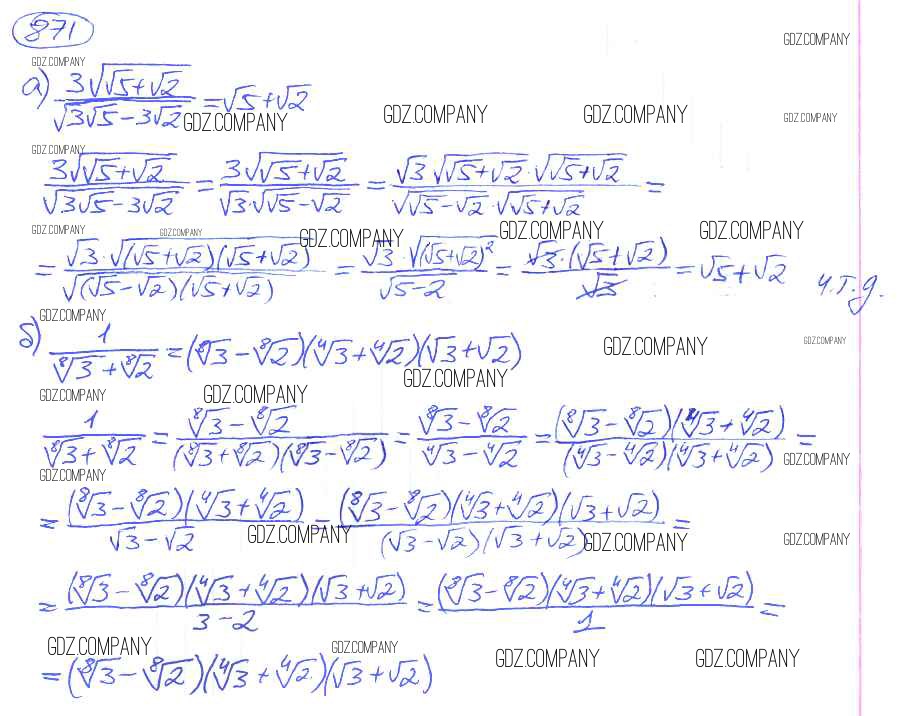 871
GDZ.COMPANY
GDZ.COMPANY
а) 3√(√5+√2) / √(3√5−3√2) = √5+√2
GDZ.COMPANY GDZ.COMPANY GDZ.COMPANY GDZ.COMPANY
GDZ.COMPANY
3√(√5+√2) / √(3√5−3√2) = 3√(√5+√2) / (√3·√(√5−√2)) = √3·√(√5+√2)·√(√5+√2) / (√(√5−√2)·√(√5+√2)) =
GDZ.COMPANY GDZ.COMPANY GDZ.COMPANY GDZ.COMPANY GDZ.COMPANY
= √3·√((√5+√2)(√5+√2)) / √((√5−√2)(√5+√2)) = √3·√((√5+√2)²) / √(5−2) = √3·(√5+√2) / √3 = √5+√2 ч.т.д.
GDZ.COMPANY
б) 1 / (⁸√3+⁸√2) = (⁸√3−⁸√2)(⁴√3+⁴√2)(√3+√2)
GDZ.COMPANY GDZ.COMPANY
GDZ.COMPANY
GDZ.COMPANY GDZ.COMPANY
1 / (⁸√3+⁸√2) = (⁸√3−⁸√2) / ((⁸√3+⁸√2)(⁸√3−⁸√2)) = (⁸√3−⁸√2) / (⁴√3−⁴√2) = (⁸√3−⁸√2)(⁴√3+⁴√2) / ((⁴√3−⁴√2)(⁴√3+⁴√2)) =
GDZ.COMPANY
GDZ.COMPANY
= (⁸√3−⁸√2)(⁴√3+⁴√2) / (√3−√2) = (⁸√3−⁸√2)(⁴√3+⁴√2)(√3+√2) / ((√3−√2)(√3+√2)) =
GDZ.COMPANY GDZ.COMPANY GDZ.COMPANY
= (⁸√3−⁸√2)(⁴√3+⁴√2)(√3+√2) / (3−2) = (⁸√3−⁸√2)(⁴√3+⁴√2)(√3+√2) / 1 =
GDZ.COMPANY GDZ.COMPANY GDZ.COMPANY GDZ.COMPANY
= (⁸√3−⁸√2)(⁴√3+⁴√2)(√3+√2)